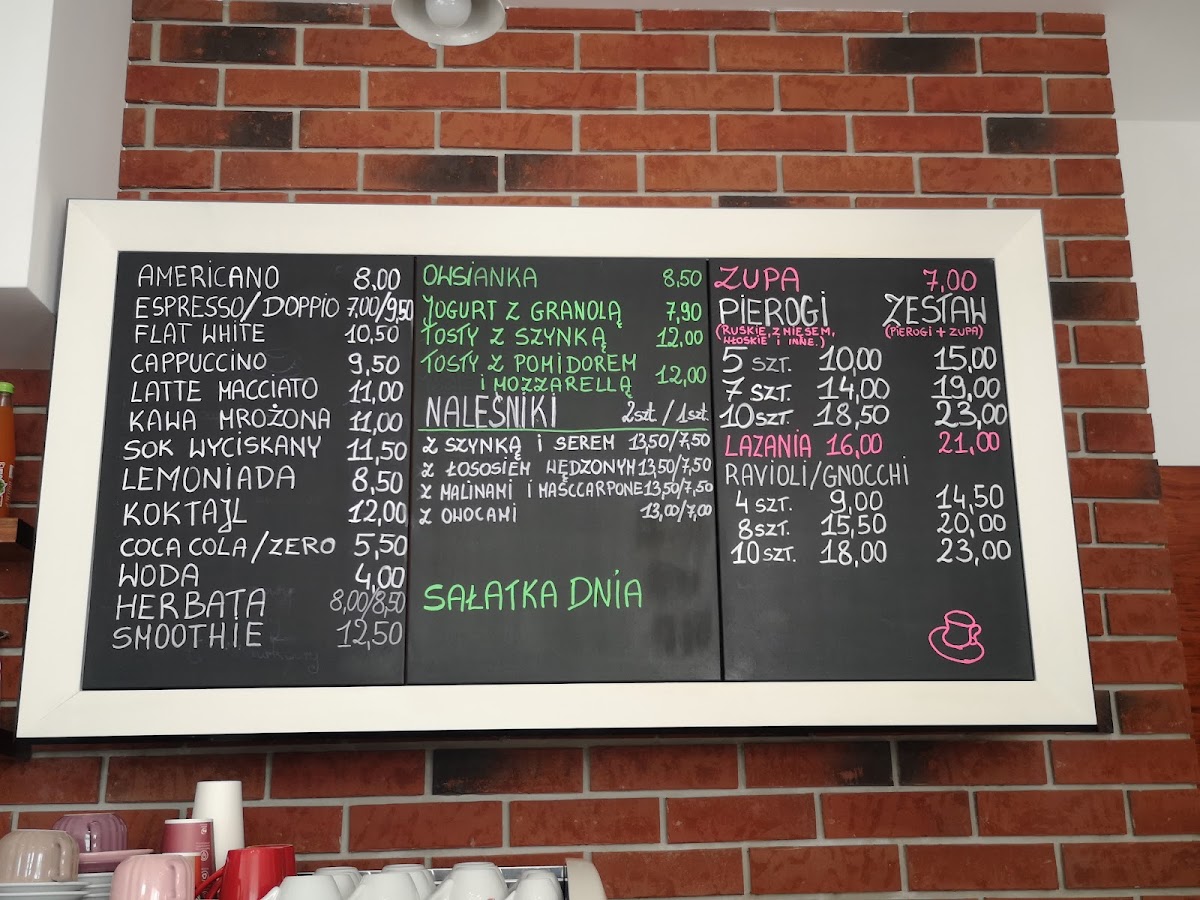 AMERICANO 8,00
ESPRESSO/DOPPIO 7,00/9,50
FLAT WHITE 10,50
CAPPUCCINO 9,50
LATTE MACCIATO 11,00
KAWA MROŻONA 11,00
SOK WYCISKANY 11,50
LEMONIADA 8,50
KOKTAJL 12,00
COCA COLA/ZERO 5,50
WODA 4,00
HERBATA 8,00/8,50
SMOOTHIE 12,50
OWSIANKA 8,50
YOGURT Z GRANOLĄ 7,90
TOSTY Z SZYNKĄ 12,00
TOSTY Z POMIDOREM
I MOZZARELLĄ 12,00
NALEŚNIKI 2szt./1szt.
Z SZYNKĄ I SEREM 13,50/7,50
Z ŁOSOSIEM WĘDZONYM 13,50/7,50
Z MALINAMI I MASCCARPONE 13,50/7,50
Z OWOCAMI 13,00/7,00
SAŁATKA DNIA
ZUPA 7,00
PIEROGI ZESTAW
(RUSKIE, Z MIĘSEM, (PIEROGI + ZUPA)
WŁOSKIE I INNE.)
5 SZT. 10,00 15,00
7 SZT. 14,00 19,00
10 SZT. 18,50 23,00
LAZANIA 16,00 21,00
RAVIOLI/GNOCCHI
4 SZT. 9,00 14,50
8 SZT. 15,50 20,00
10 SZT. 18,00 23,00